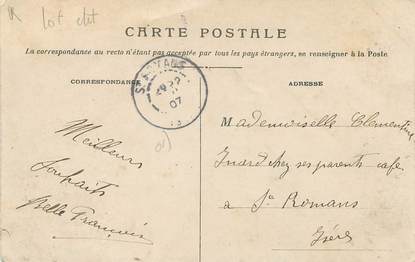 lot cht
CARTE POSTALE
La correspondance au recto n'étant pas acceptée par tous les pays étrangers, se renseigner à la Poste.
CORRESPONDANCE
ADRESSE
07
Meilleurs
Souhaits
Belle François
Mademoiselle Clementine
Inard chez ses parents café
a St Romans
Isère